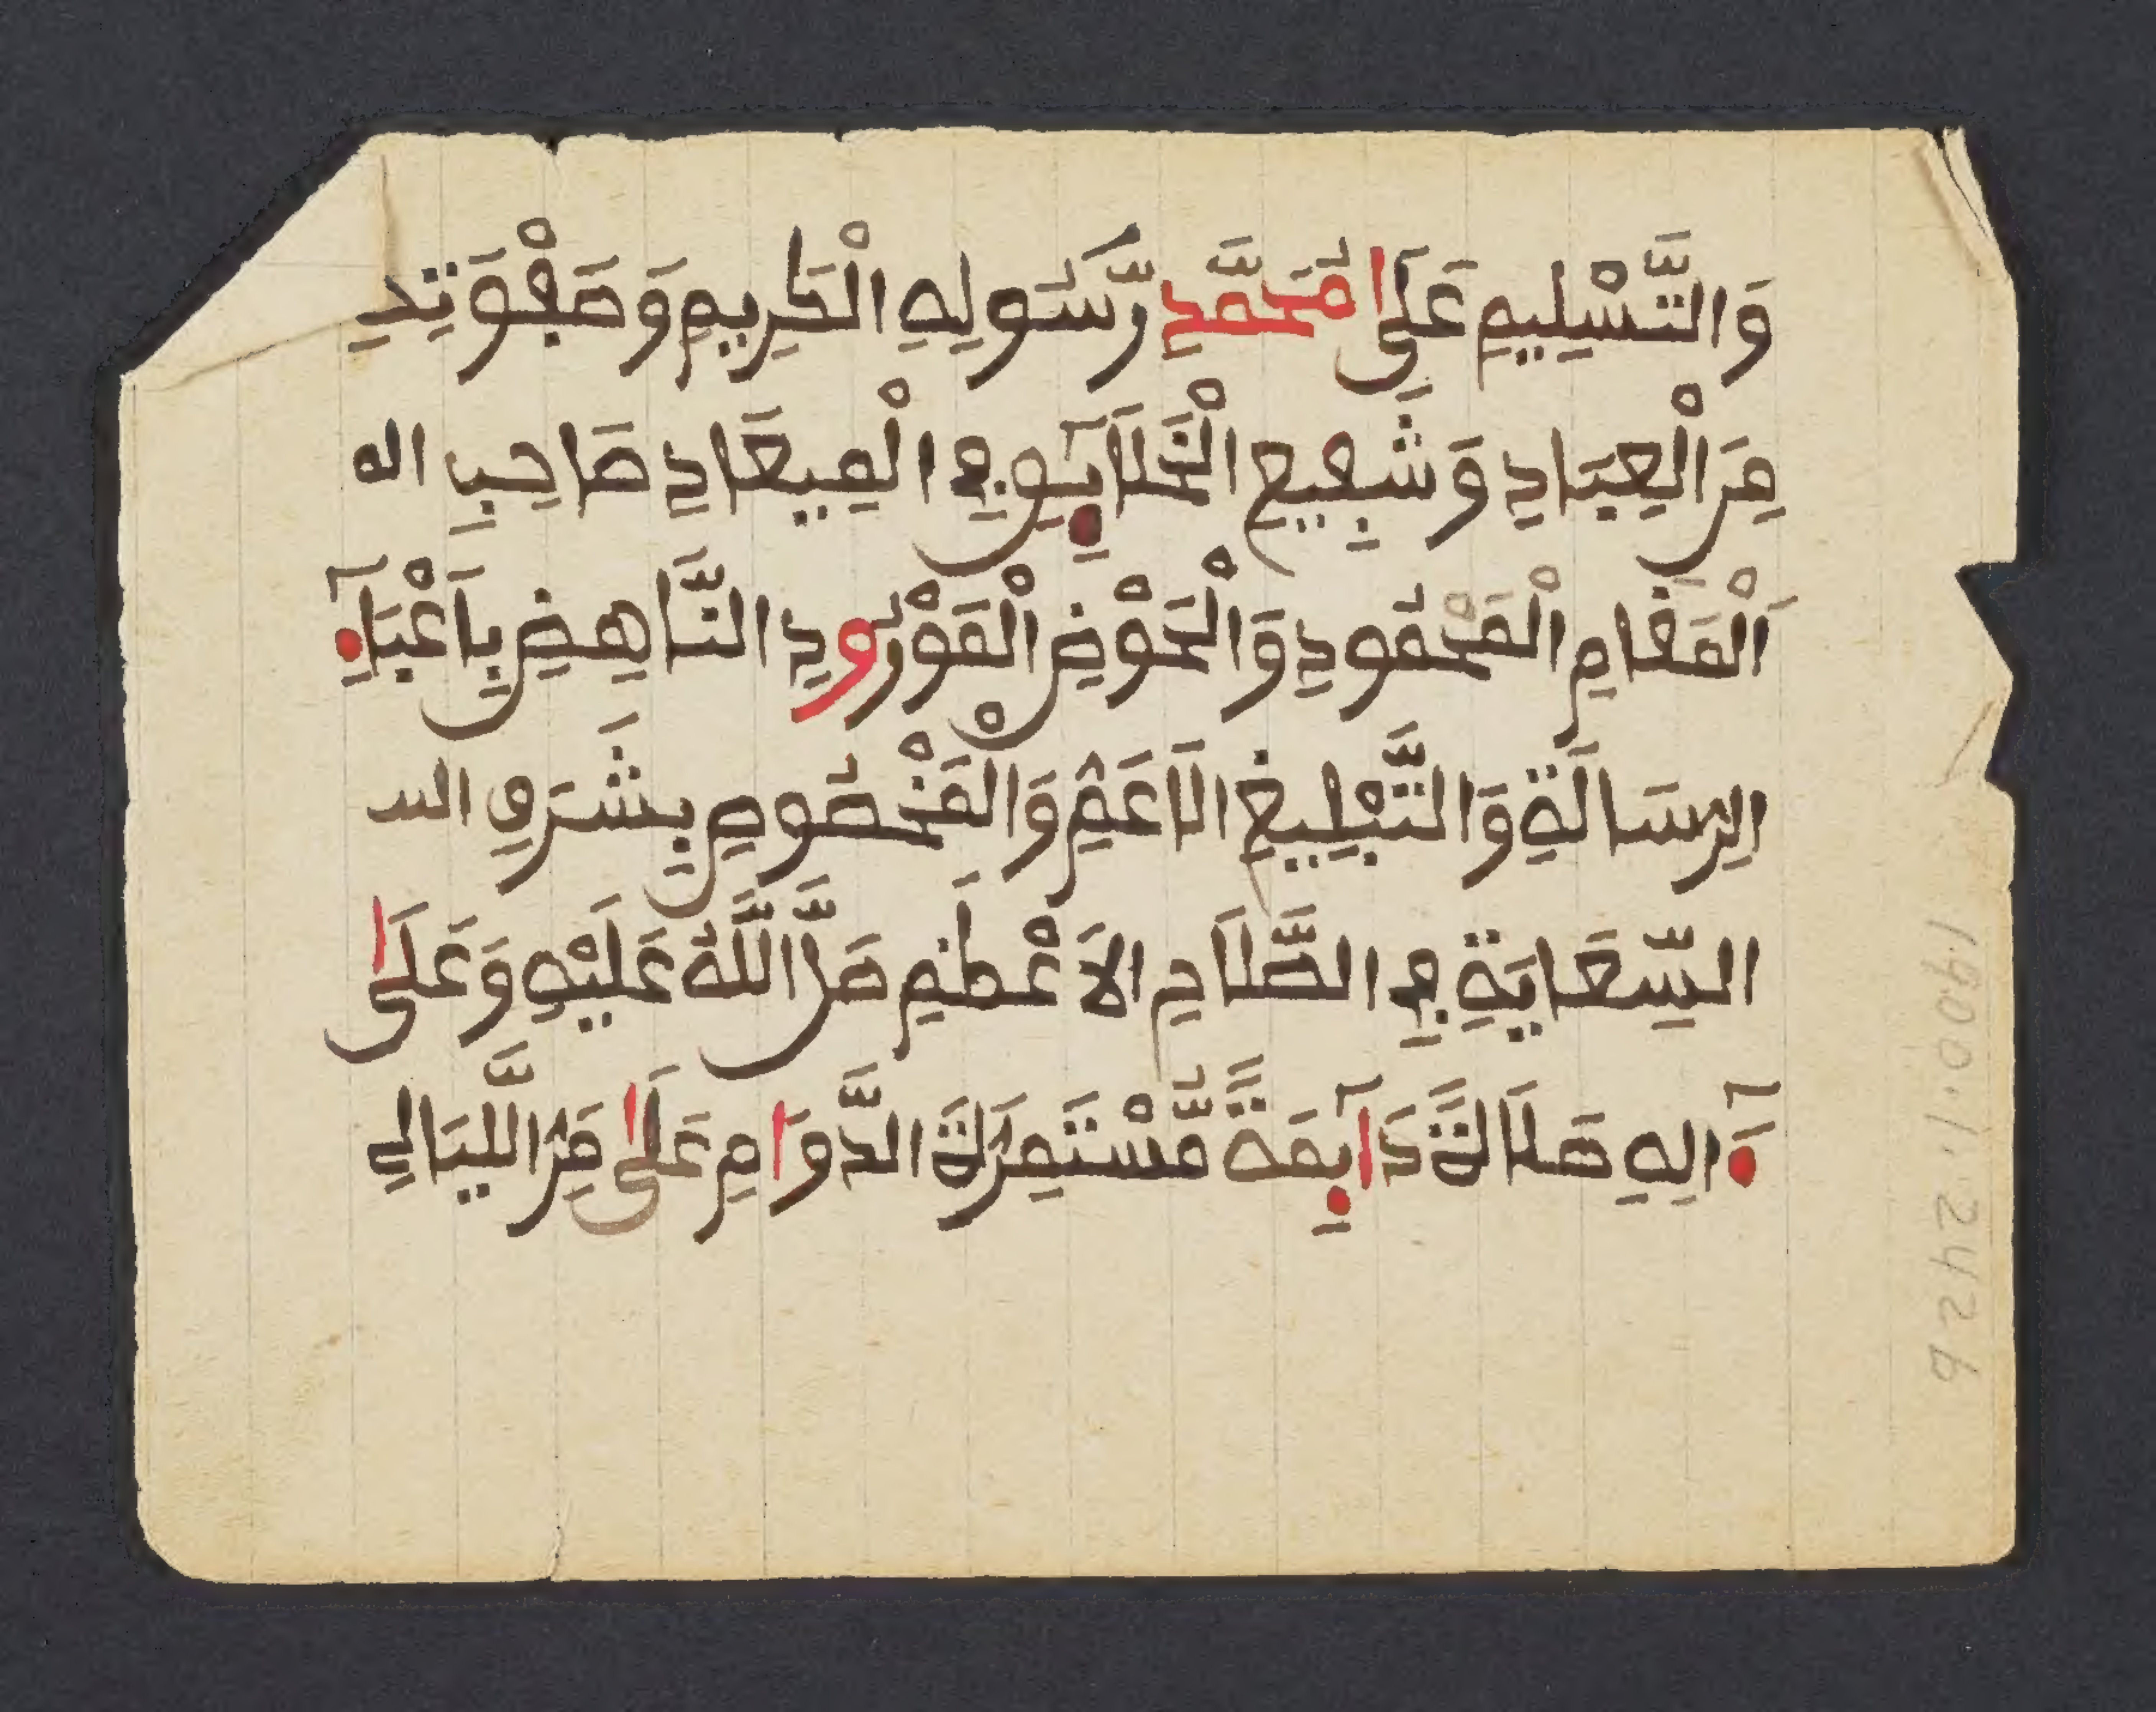 وَالتَّسْلِيمِ عَلَى مُحَمَّدٍ رَّسُولِهِ الْكَرِيمِ وَصَفْوَتِهِ
مِنَ الْعِبَادِ وَشَفِيعِ الْخَلَآئِقِ فِي الْمِيعَادِ صَاحِبِ الـ
اَلْمَقَامِ الْمَحْمُودِ وَالْحَوْضِ الْمَوْرُودِ النَّاهِضِ بِأَعْبَآءِ
الرِسَالَةِ وَالتَّبْلِيغِ الَاعَمِّ وَالْمَخْصُوصِ بِشَرَفِ السـ
السِّعَايَةِ فِي الصَّلَاحِ الأَعْظَمِ صَلَّ اللَّهُ عَلَيْهِ وَعَلَى
ءَالِهِ صَلَاةً دَآئِمَةً مُّسْتَمِرَّةَ الدَّوَامِ عَلَى مَرِّ اللَّيَالِي
1900.1.2426